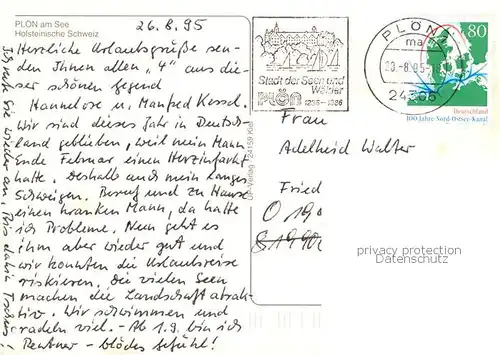 PLÖN am See
Holsteinische Schweiz
26.8.95
Herzliche Urlaubsgrüße sen-
den Ihnen allen "4" aus die-
ser schönen Gegend
Hannelose u. Manfred Kessel.
Wir sind dieses Jahr in Deutsch-
land geblieben, weil mein Mann
Ende Februar einen Herzinfarkt
hatte. Deshalb auch mein langes
Schweigen. Beruf und zu Hause
einen kranken Mann, da hatte
ich Probleme. Nun geht es
ihm aber wieder gut und
wir konnten die Urlaubsreise
riskieren. Die vielen Seen
machen die Landschaft attrak-
tiv. Wir schwimmen und
radeln viel. - Ab 1.9. bin ich
Rentner - blödes Gefühl!
Ich rufe Sie wieder an, Bis dahin Tschüs!
24159 Kiel
Stadt der Seen und
Wälder
PLÖN
1236-1986
PLÖN 1
ma
24306
80
Deutschland
100 Jahre Nord-Ostsee-Kanal
Frau
Adelheid Walter
Fried
O 19
privacy protection
DATENSCHUTZ